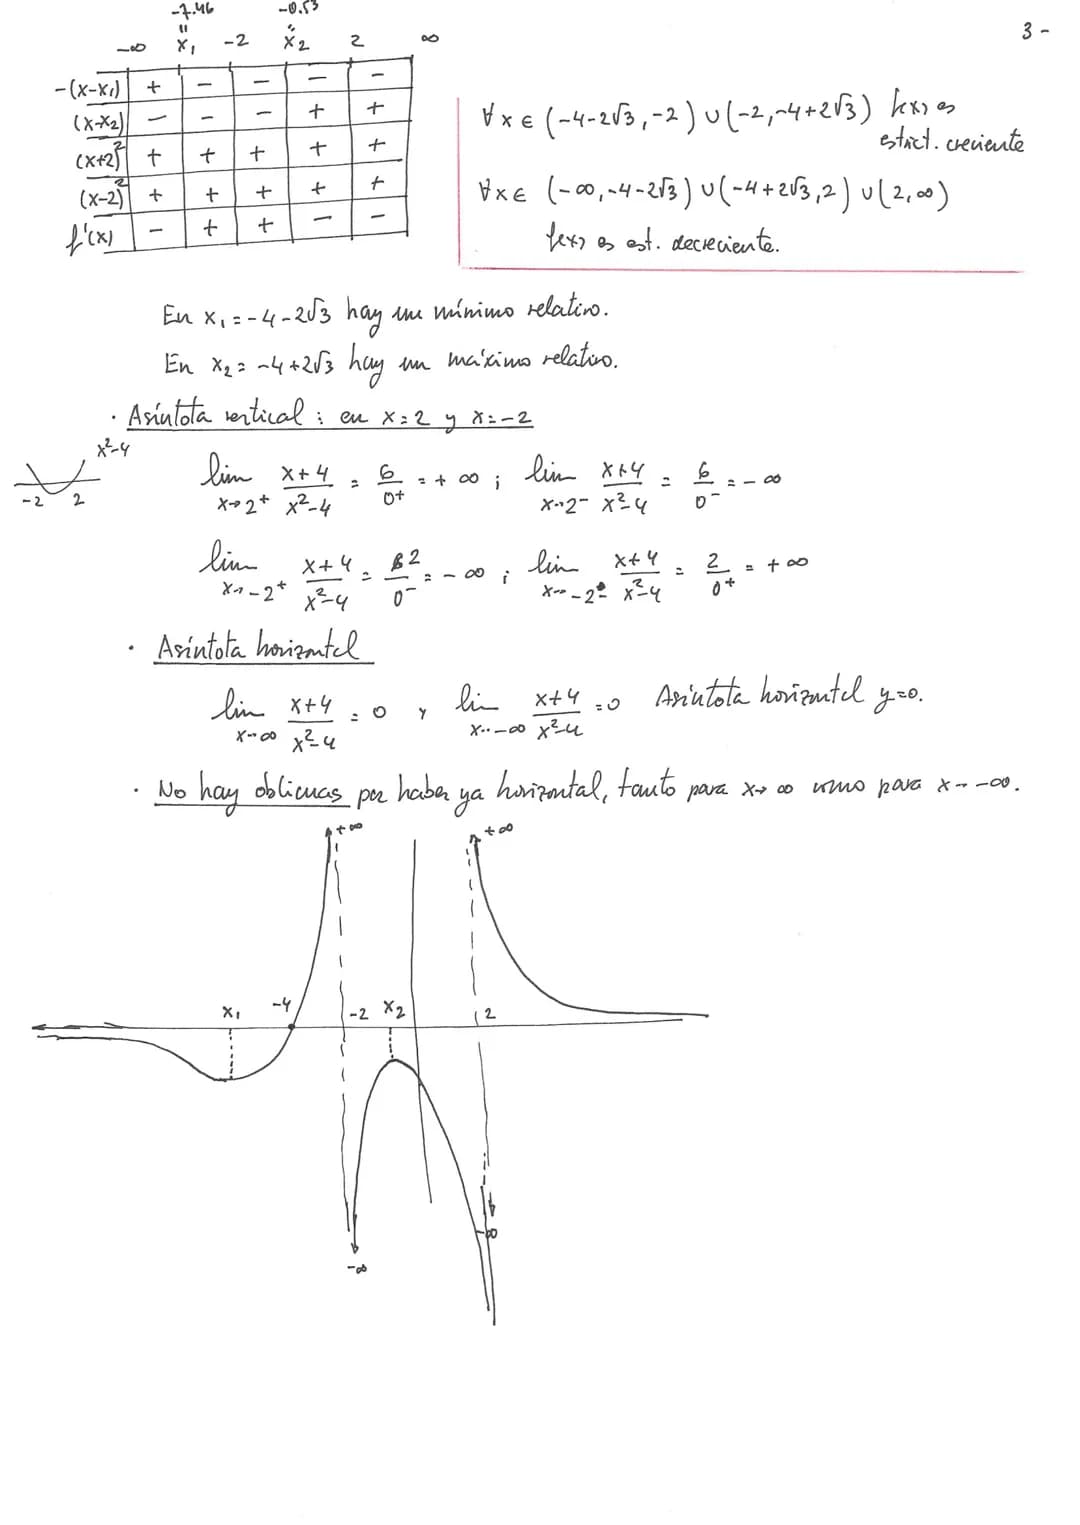 3-
-7.46 -0.53
" "
-∞ x₁ -2 x₂ 2 ∞
-(x-x₁) + - - - -
(x-x₂) - - - + +
(x+2)² + + + + +
(x-2)² + + + + +
f'(x) - + + - -
∀x∈ (-4-2√3,-2)∪(-2,-4+2√3) f(x) es
estrict. creciente
∀x∈ (-∞,-4-2√3)∪(-4+2√3,2)∪(2,∞)
f(x) es est. decreciente.
En x₁=-4-2√3 hay un mínimo relativo.
En x₂=-4+2√3 hay un máximo relativo.
· Asíntota vertical: en x=2 y x=-2
x²-4
-2 2
lim x→2⁺ (x+4)/(x²-4) = 6/0⁺ = +∞ ; lim x→2⁻ (x+4)/(x²-4) = 6/0⁻ = -∞
lim x→-2⁺ (x+4)/(x²-4) = 2/0⁻ = -∞ ; lim x→-2⁻ (x+4)/(x²-4) = 2/0⁺ = +∞
· Asíntota horizontal
lim x→∞ (x+4)/(x²-4) = 0 y lim x→-∞ (x+4)/(x²-4) = 0 Asíntota horizontal y=0.
· No hay oblicuas por haber ya horizontal, tanto para x→∞ como para x→-∞.
+∞ +∞
x₁ -4 -2 x₂ 2
-∞
-∞